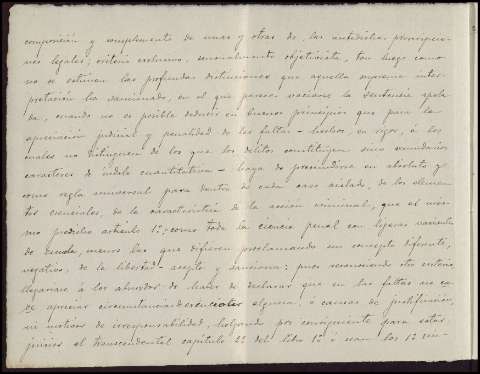 composición y complemento de unas y otras de las antedichas prescripcio-
nes legales; criterio exclusivo, sensualmente objetivista, tan luego como
no se estimen las profundas distinciones que aquella suprema inter-
pretación ha dominado, en el que parece inspirarse la sentencia apela-
da, cuando no es posible deducir en buenos principios que para la
apreciación judicial y penalidad de las faltas - hechos, en rigor, á los
cuales no distinguen de los que los delitos constituyen sino secundarios
caracteres de índole cuantitativa - haya de prescindirse en absoluto y
como regla universal para dentro de cada caso aislado, de los elemen-
tos esenciales, de la característica de la acción criminal, que el mis-
mo predicho artículo 1º, como toda la ciencia penal con ligeras variantes
de escuela, menos las que difieren proclamando un concepto diferente,
negativo, de la libertad - acepta y sanciona: pues reconociendo otro criterio
llegaríase á los absurdos de haber de declarar que en las faltas no ca-
be apreciar circunstancias alguna, ó causas de justificación,
ni motivos de irresponsabilidad, holgando por consiguiente para estos
juicios el transcendental capítulo 2º del libro 1º ó sean los